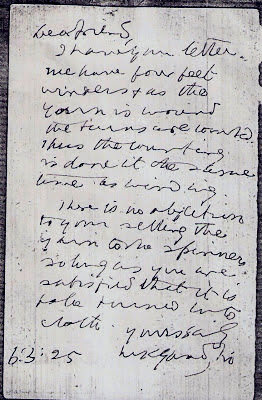 Dear friend,
I have your letter.
We have four feet
winders & as the
yarn is wound
the turns are counted.
Thus the counting
is done at the same
time as winding.
There is no objection
to your selling the
yarn to the spinners
so long as you are
satisfied that it is
to be turned into
cloth. yours sincly
6:3:25 MKGandhi